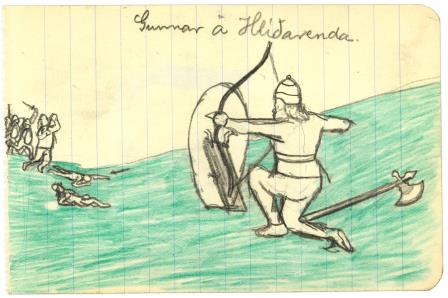 Gunnar á Hlíðarenda.